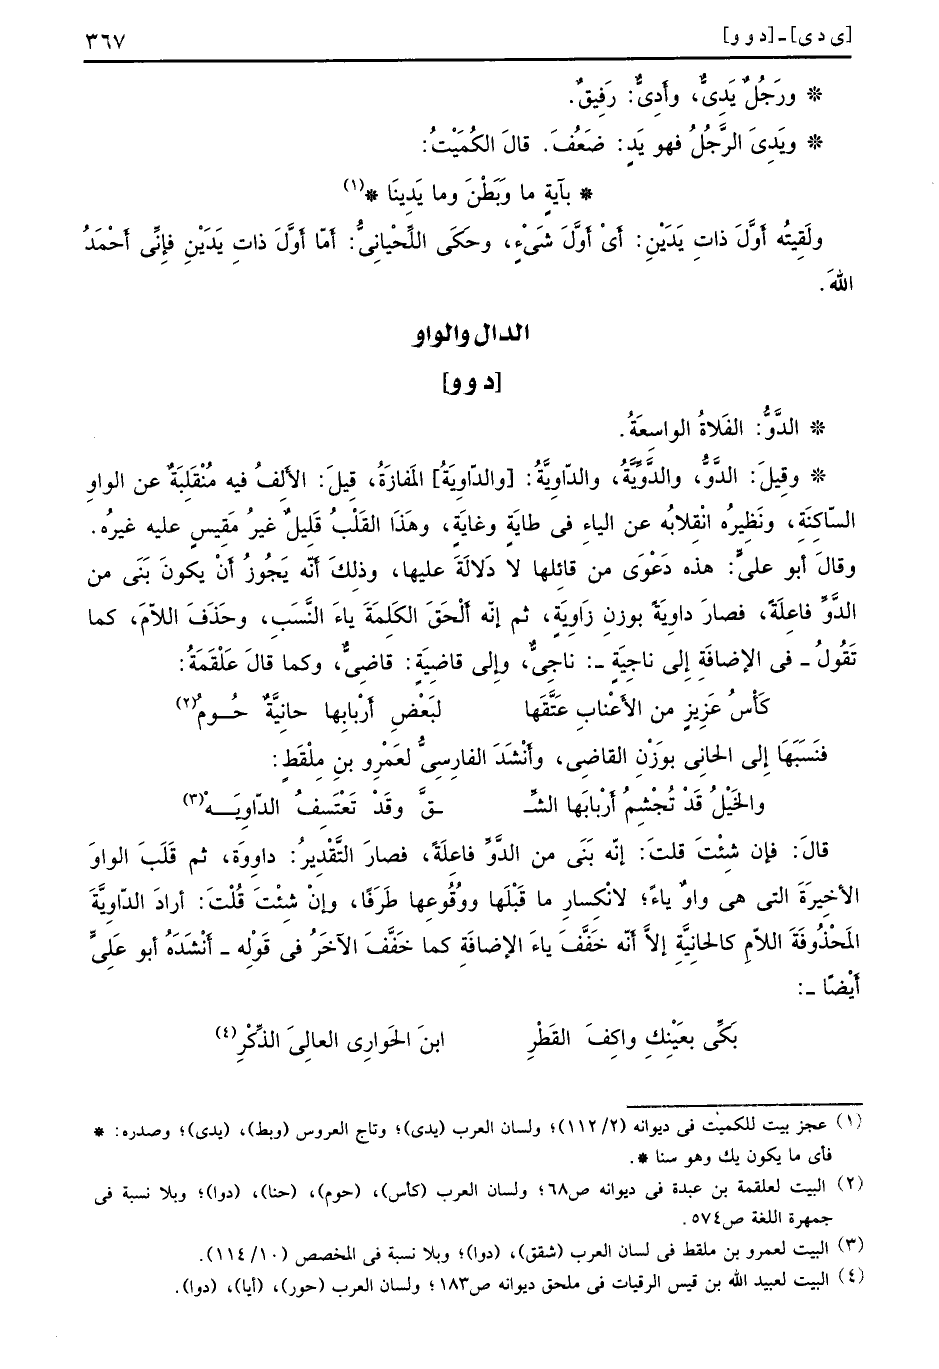 [ى د ى] ـ [د و و] ٣٦٧
* ورَجُلٌ يَدِىٌّ، وأَدِىٌّ: رَفِيقٌ.
* ويَدِىَ الرَّجُلُ فهو يَدٍ: ضَعُفَ. قالَ الكُمَيْتُ:
* بآيةِ ما وَبَطْنَ وما يَدِينَا *(١)
ولَقِيتُه أَوَّلَ ذاتِ يَدَيْنِ: أَىْ أَوَّلَ شَىْءٍ، وحَكَى اللِّحْيانِىُّ: أمّا أوَّلَ ذاتِ يَدَيْنِ فإنِّى أَحْمَدُ
اللهَ.
الدال والواو
[د و و]
* الدَّوُّ: الفَلاةُ الواسِعَةُ.
* وقِيلَ: الدَّوُّ، والدَّوِّيَّةُ، والدّاوِيَّةُ: [والدّاوِيَةُ] المَفازَةُ، قِيلَ: الأَلِفُ فيه مُنْقَلِبَةٌ عن الواوِ
السّاكِنَةِ، ونَظِيرُه انْقِلابُه عن الياءِ فى طايَةٍ وغايَةٍ، وهَذَا القَلْبُ قَلِيلٌ غيرُ مَقِيسٍ عليه غيرُه.
وقالَ أبو علىٍّ: هذه دَعْوَى من قائلها لا دَلالَةَ عليها، وذلكَ أنّه يَجُوزُ أنْ يكونَ بَنَى من
الدَّوِّ فاعِلَةً، فصارَ داوِيَةً بوزنِ زَاوِيَةٍ، ثم إنّه أَلْحَقَ الكَلِمَةَ ياءَ النَّسَبِ، وحَذَفَ اللاّمَ، كما
تَقُولُ ـ فى الإضافَةِ إلى ناجِيَةٍ ـ: ناجِىٌّ، وإلى قاضِيَةٍ: قاضِىٌّ، وكما قالَ عَلْقَمَةُ:
كَأْسُ عَزِيزٍ من الأعْنابِ عَتَّقَها لبَعْضِ أَرْبابِها حانِيَّةٌ حُـومُ(٢)
فنَسَبَهَا إلى الحانِى بوَزْنِ القاضِى، وأنْشَدَ الفارِسِىُّ لعَمْرِو بنِ مِلْقَطٍ:
والخَيْلُ قَدْ تُجْشِمُ أَرْبابَها الشِّـ ـقَّ وقَدْ تَعْتَسِفُ الدّاوِيَـهْ(٣)
قالَ: فإن شئْتَ قلتَ: إنّه بَنَى من الدَّوِّ فاعِلَةً، فصارَ التَّقْدِيرُ: داوِوَة، ثم قَلَبَ الواوَ
الأخِيرَةَ التى هى واوٌ ياءً؛ لانْكِسارِ ما قَبْلَها ووُقُوعِها طَرَفًا، وإنْ شئْتَ قُلْتَ: أرادَ الدّاوِيَّةَ
المَحْذُوفَةَ اللاّمِ كالحانِيَّةِ إلاَّ أنّه خَفَّفَ ياءَ الإضافَةِ كما خَفَّفَ الآخَرُ فى قَوْلِه ـ أَنْشَدَهُ أبو عَلِىٍّ
أَيْضًا ـ:
بَكِّى بعَيْنِكِ واكِفَ القَطْرِ ابنَ الحَوارِى العالِىَ الذِّكْرِ(٤)
(١) عجز بيت للكميت فى ديوانه (١١٢/٢)؛ ولسان العرب (يدى)؛ وتاج العروس (وبط)، (يدى)؛ وصدره: *
فأى ما يكون يك وهو سنا *.
(٢) البيت لعلقمة بن عبدة فى ديوانه ص٦٨؛ ولسان العرب (كأس)، (حوم)، (حنا)، (دوا)؛ وبلا نسبة فى
جمهرة اللغة ص٥٧٤.
(٣) البيت لعمرو بن ملقط فى لسان العرب (شفق)، (دوا)؛ وبلا نسبة فى المخصص (١١٤/١٠).
(٤) البيت لعبيد الله بن قيس الرقيات فى ملحق ديوانه ص١٨٣؛ ولسان العرب (حور)، (أيا)، (دوا).